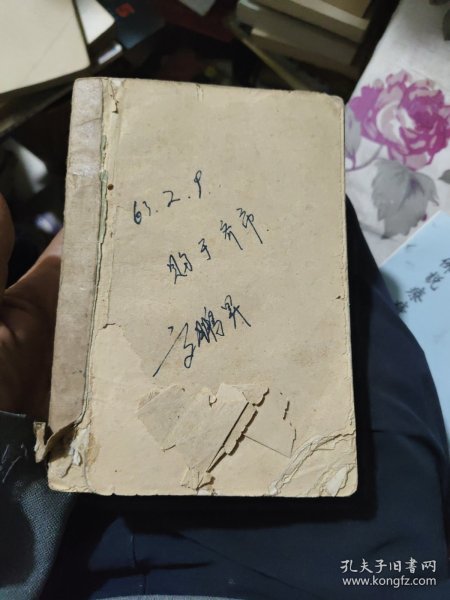 63.2.9
购于齐市.
鹏昇
孔夫子旧书网
www.kongfz.com